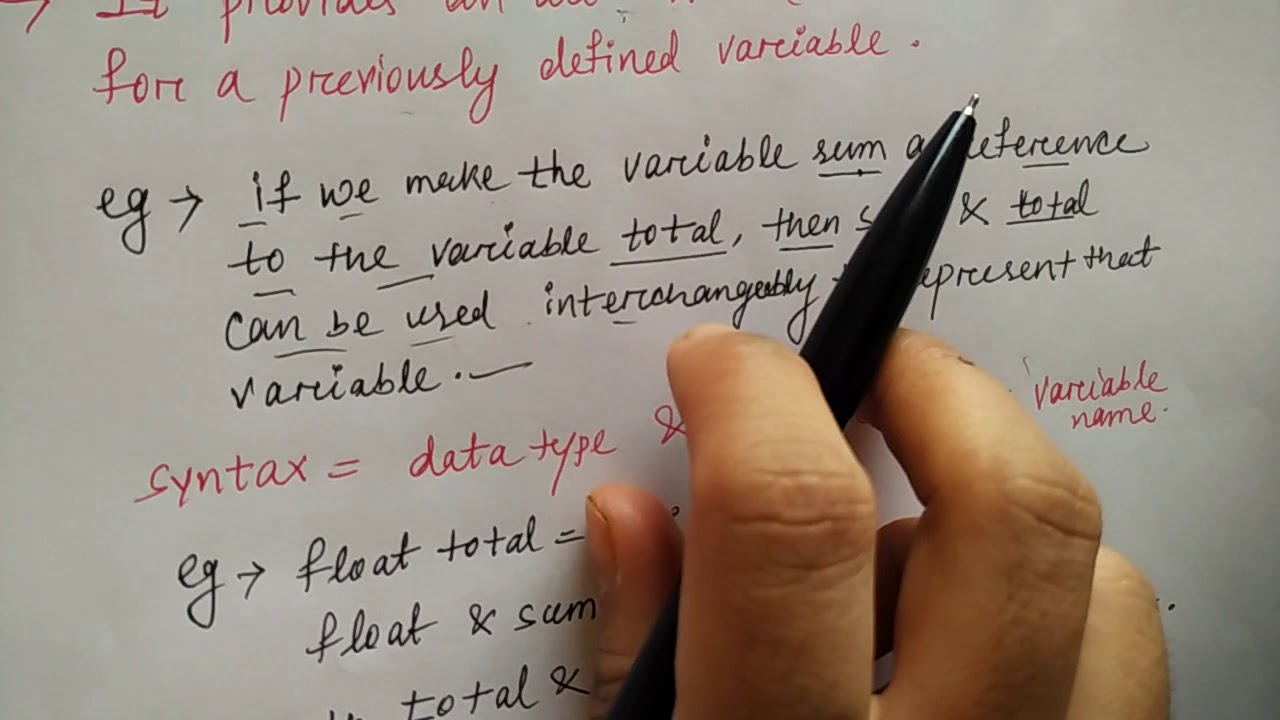 → It provides an
for a previously defined variable.
eg → if we make the variable sum a reference
to the variable total, then & total
can be used interchangeably represent that
variable.
variable
name.
syntax = data type &
eg → float total =
float & sum
total &